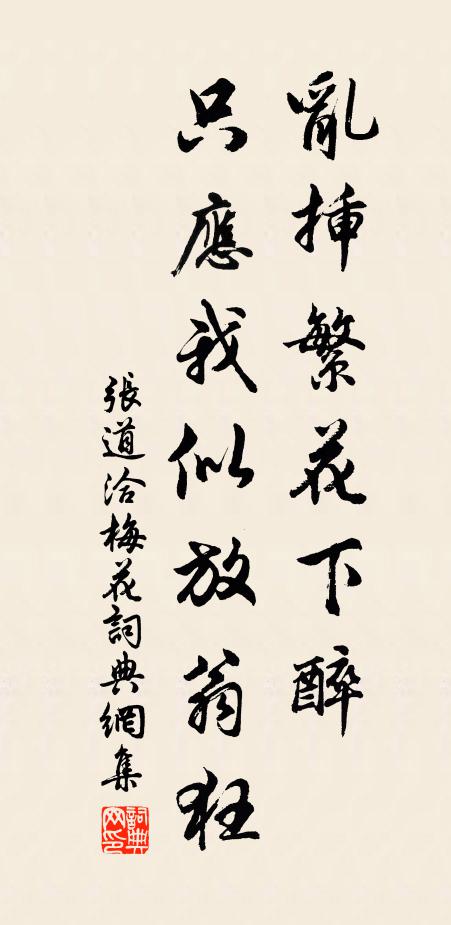 亂挿繁花下醉
只應我似放翁狂
張道洽梅花詞典網集
詞典
网印